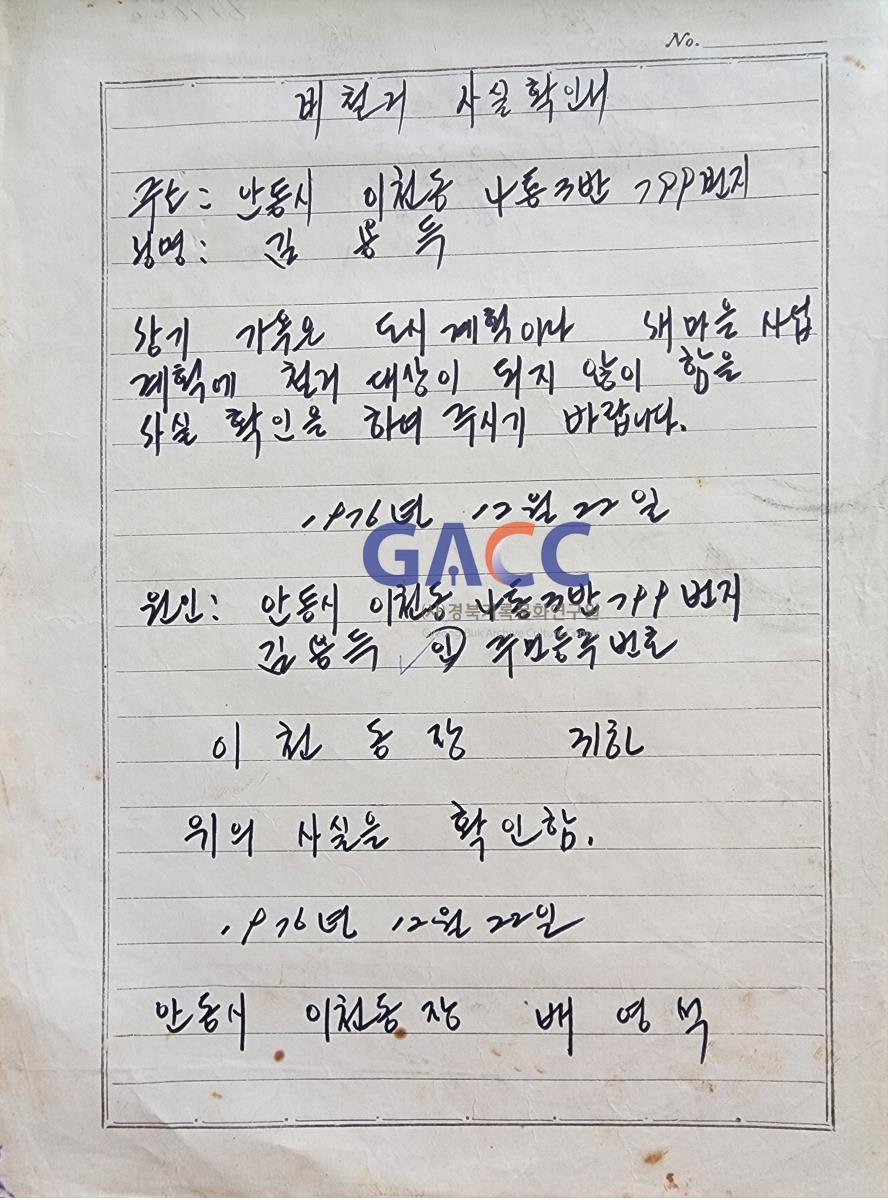 No.
비철거 사실확인서
주소: 안동시 이천동 나동3반 799번지
성명: 김용득
상기 가옥은 도시계획이나 새마을 사업
계획에 철거 대상이 되지 않이 함을
사실 확인을 하여 주시기 바랍니다.
1976년 12월 22일
GACC
원인: 안동시 이천동 나동3반 799번지
김용득 인 주민등록번호
이천동장 귀하
위의 사실을 확인함.
1976년 12월 22일
안동시 이천동장 배영석